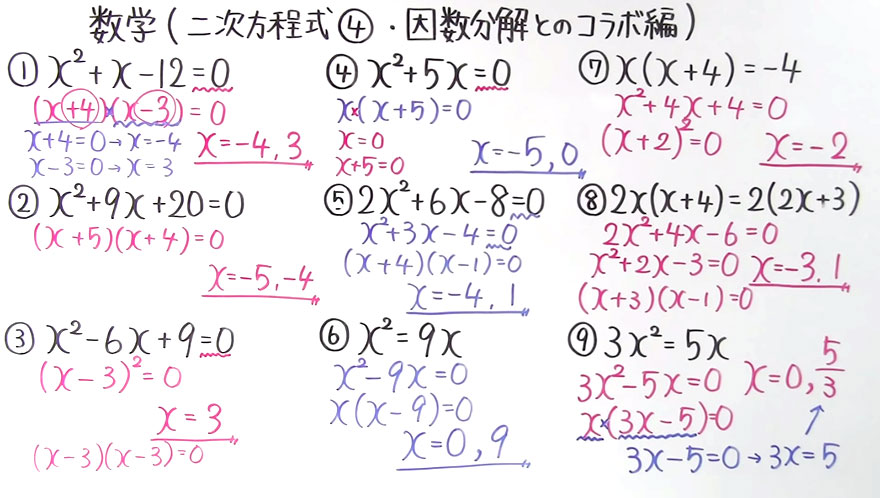 数学(二次方程式④・因数分解とのコラボ編)
① x²+x-12=0
(x+4)×(x-3)=0
x+4=0→x=-4
x-3=0→x=3
x=-4,3
② x²+9x+20=0
(x+5)(x+4)=0
x=-5,-4
③ x²-6x+9=0
(x-3)²=0
x=3
(x-3)(x-3)=0
④ x²+5x=0
x×(x+5)=0
x=0
x+5=0
x=-5,0
⑤ 2x²+6x-8=0
x²+3x-4=0
(x+4)(x-1)=0
x=-4,1
⑥ x²=9x
x²-9x=0
x(x-9)=0
x=0,9
⑦ x(x+4)=-4
x²+4x+4=0
(x+2)²=0
x=-2
⑧ 2x(x+4)=2(2x+3)
2x²+4x-6=0
x²+2x-3=0
x=-3,1
(x+3)(x-1)=0
⑨ 3x²=5x
3x²-5x=0
x=0,5/3
x×(3x-5)=0
3x-5=0→3x=5